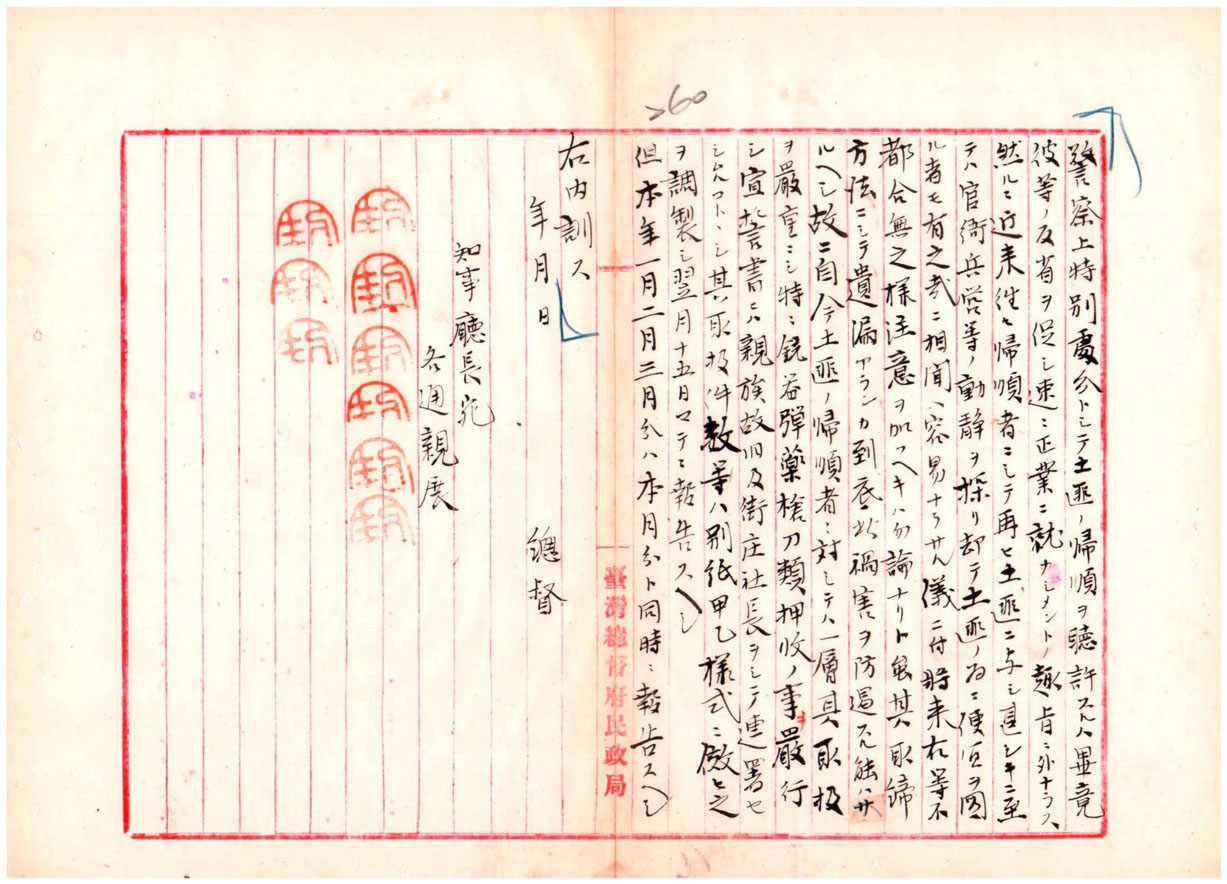 260
警察上特別處分トシテ土匪ノ帰順ヲ聴許スルハ畢竟
彼等ノ反省ヲ促シ速ニ正業ニ就カシメントノ趣旨ニ外ナラス
然ルニ近来往々帰順者ニシテ再ヒ土匪ニ与シ甚シキニ至
テハ官衙兵営等ノ動静ヲ探リ却テ土匪ノ為ニ便宜ヲ図
ル者モ有之哉ニ相聞ヘ容易ナラサル儀ニ付将来右等不
都合無之様注意ヲ加フヘキハ勿論ナリト虽其取締
方法ニシテ遺漏アランカ到底此禍害ヲ防遏スル能ハサ
ルヘシ故ニ自今土匪ノ帰順者ニ対シテハ一層其取扱
ヲ厳重ニシ特ニ銃器弾薬槍刀類押收ノ事ヲ嚴行
シ宣誓書ニハ親族故旧及街庄社長ヲシテ連署セ
シムルコトシ其取扱件数等ハ別紙甲乙様式ニ倣ヒ之
ヲ調製シ翌月十五日マテニ報告スヘシ
但本年一月二月三月分ハ本月分ト同時ニ報告スヘシ
右内訓ス
年月日
總督
知事廳長宛
各通親展
臺灣總督府民政局